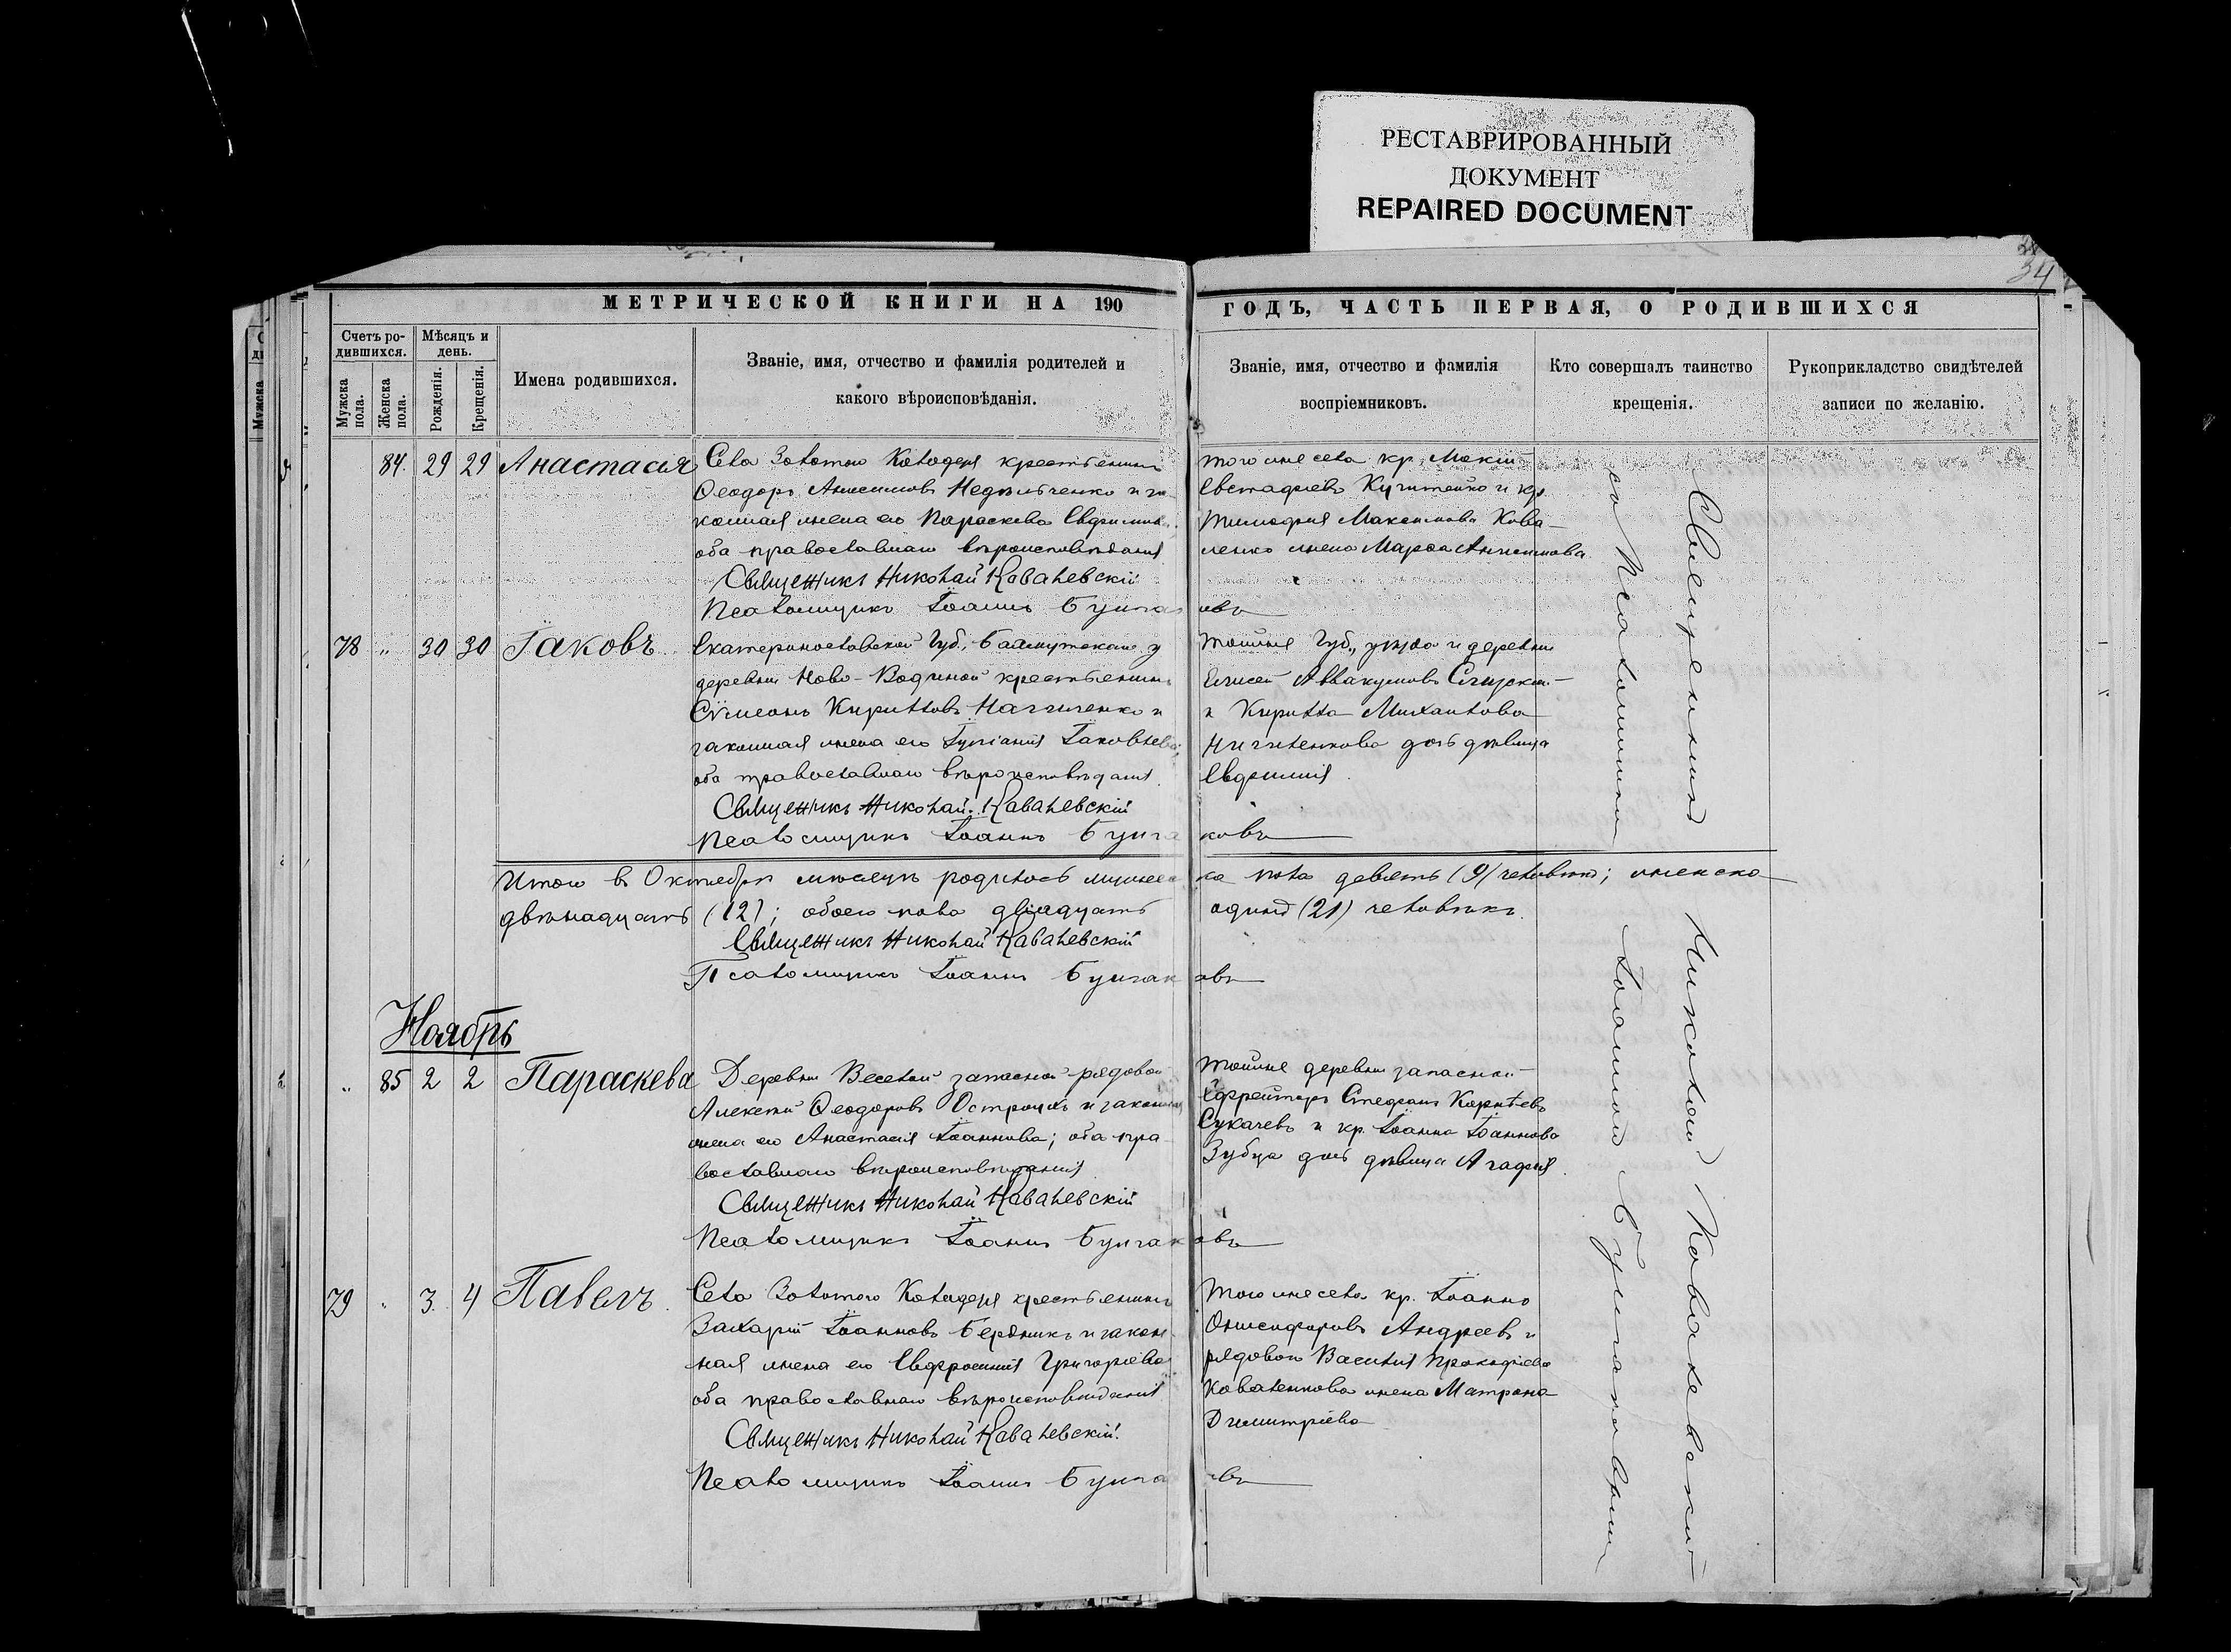 РЕСТАВРИРОВАННЫЙ
ДОКУМЕНТ
REPAIRED DOCUMENT
34
МЕТРИЧЕСКОЙ КНИГИ НА 190
ГОДЪ, ЧАСТЬ ПЕРВАЯ, О РОДИВШИХСЯ
Счетъ ро-
дившихся.
Мужска
пола.
Женска
пола.
Мѣсяцъ и
день.
Рожденія.
Крещенія.
Имена родившихся.
Званіе, имя, отчество и фамилія родителей и
какого вѣроисповѣданія.
Званіе, имя, отчество и фамилія
воспріемниковъ.
Кто совершалъ таинство
крещенія.
Рукоприкладство свидѣтелей
записи по желанію.
84. 29 29 Анастасія
Села Золотого Колодезя крестьянинъ
Ѳеодоръ Анисимовъ Недѣльченко и за-
конная жена его Параскева Евфимова
оба православнаго вѣроисповѣданія
Священникъ Николай Ковалевскій
Псаломщикъ Іоаннъ Булгаковъ
того же села кр.
Евстафіевъ и кр.
Тимофея Максимова Кова-
ленко жена Марѳа Анисимова
78 " 30 30 Іаковъ
Екатеринославской Губ., Бахмутскаго у
деревни Ново-Водяной крестьянинъ
Сѷмеонъ Кирилловъ и
законная жена его Іуліанія Іаковлева,
оба православнаго вѣроисповѣданія
Священникъ Николай Ковалевскій
Псаломщикъ Іоаннъ Булгаковъ
тойже Губ., уѣзда и деревни
Елисей Аввакумовъ
и Кирилла Михаилова
дочь дѣвица
Евфимія.
Итого въ Октябрѣ мѣсяцѣ родилось мужеска пола девять (9) человѣкъ; женска
двѣнадцать (12); обоего пола двадцать одинъ (21) человѣкъ.
Священникъ Николай Ковалевскій
Псаломщикъ Іоаннъ Булгаковъ
Ноябрь
" 85 2 2 Параскева
Деревни Веселой запасной рядовой
Алексѣй Ѳеодоровъ и законная
жена его Анастасія Іоаннова; оба пра-
вославнаго вѣроисповѣданія
Священникъ Николай Ковалевскій
Псаломщикъ Іоаннъ Булгаковъ
тойже деревни запасной
Ефрейторъ Стефанъ Корнѣевъ
Сукачевъ и кр. Іоанна Іоаннова
Зубца дочь дѣвица Агафія.
79 " 3. 4 Павелъ.
Села Золотого Колодезя крестьянинъ
Захарій Іоанновъ Бердникъ и закон-
ная жена его Евфросинія Григоріева
оба православнаго вѣроисповѣданія
Священникъ Николай Ковалевскій.
Псаломщикъ Іоаннъ Булгаковъ
того же села кр. Іоаннъ
Онисифоровъ Андреевъ и
рядового Василія Прокофіева
Коваленкова жена Матрона
Димитріева
Священникъ Николай Ковалевскій
со Псаломщикомъ Іоанномъ Булгаковымъ